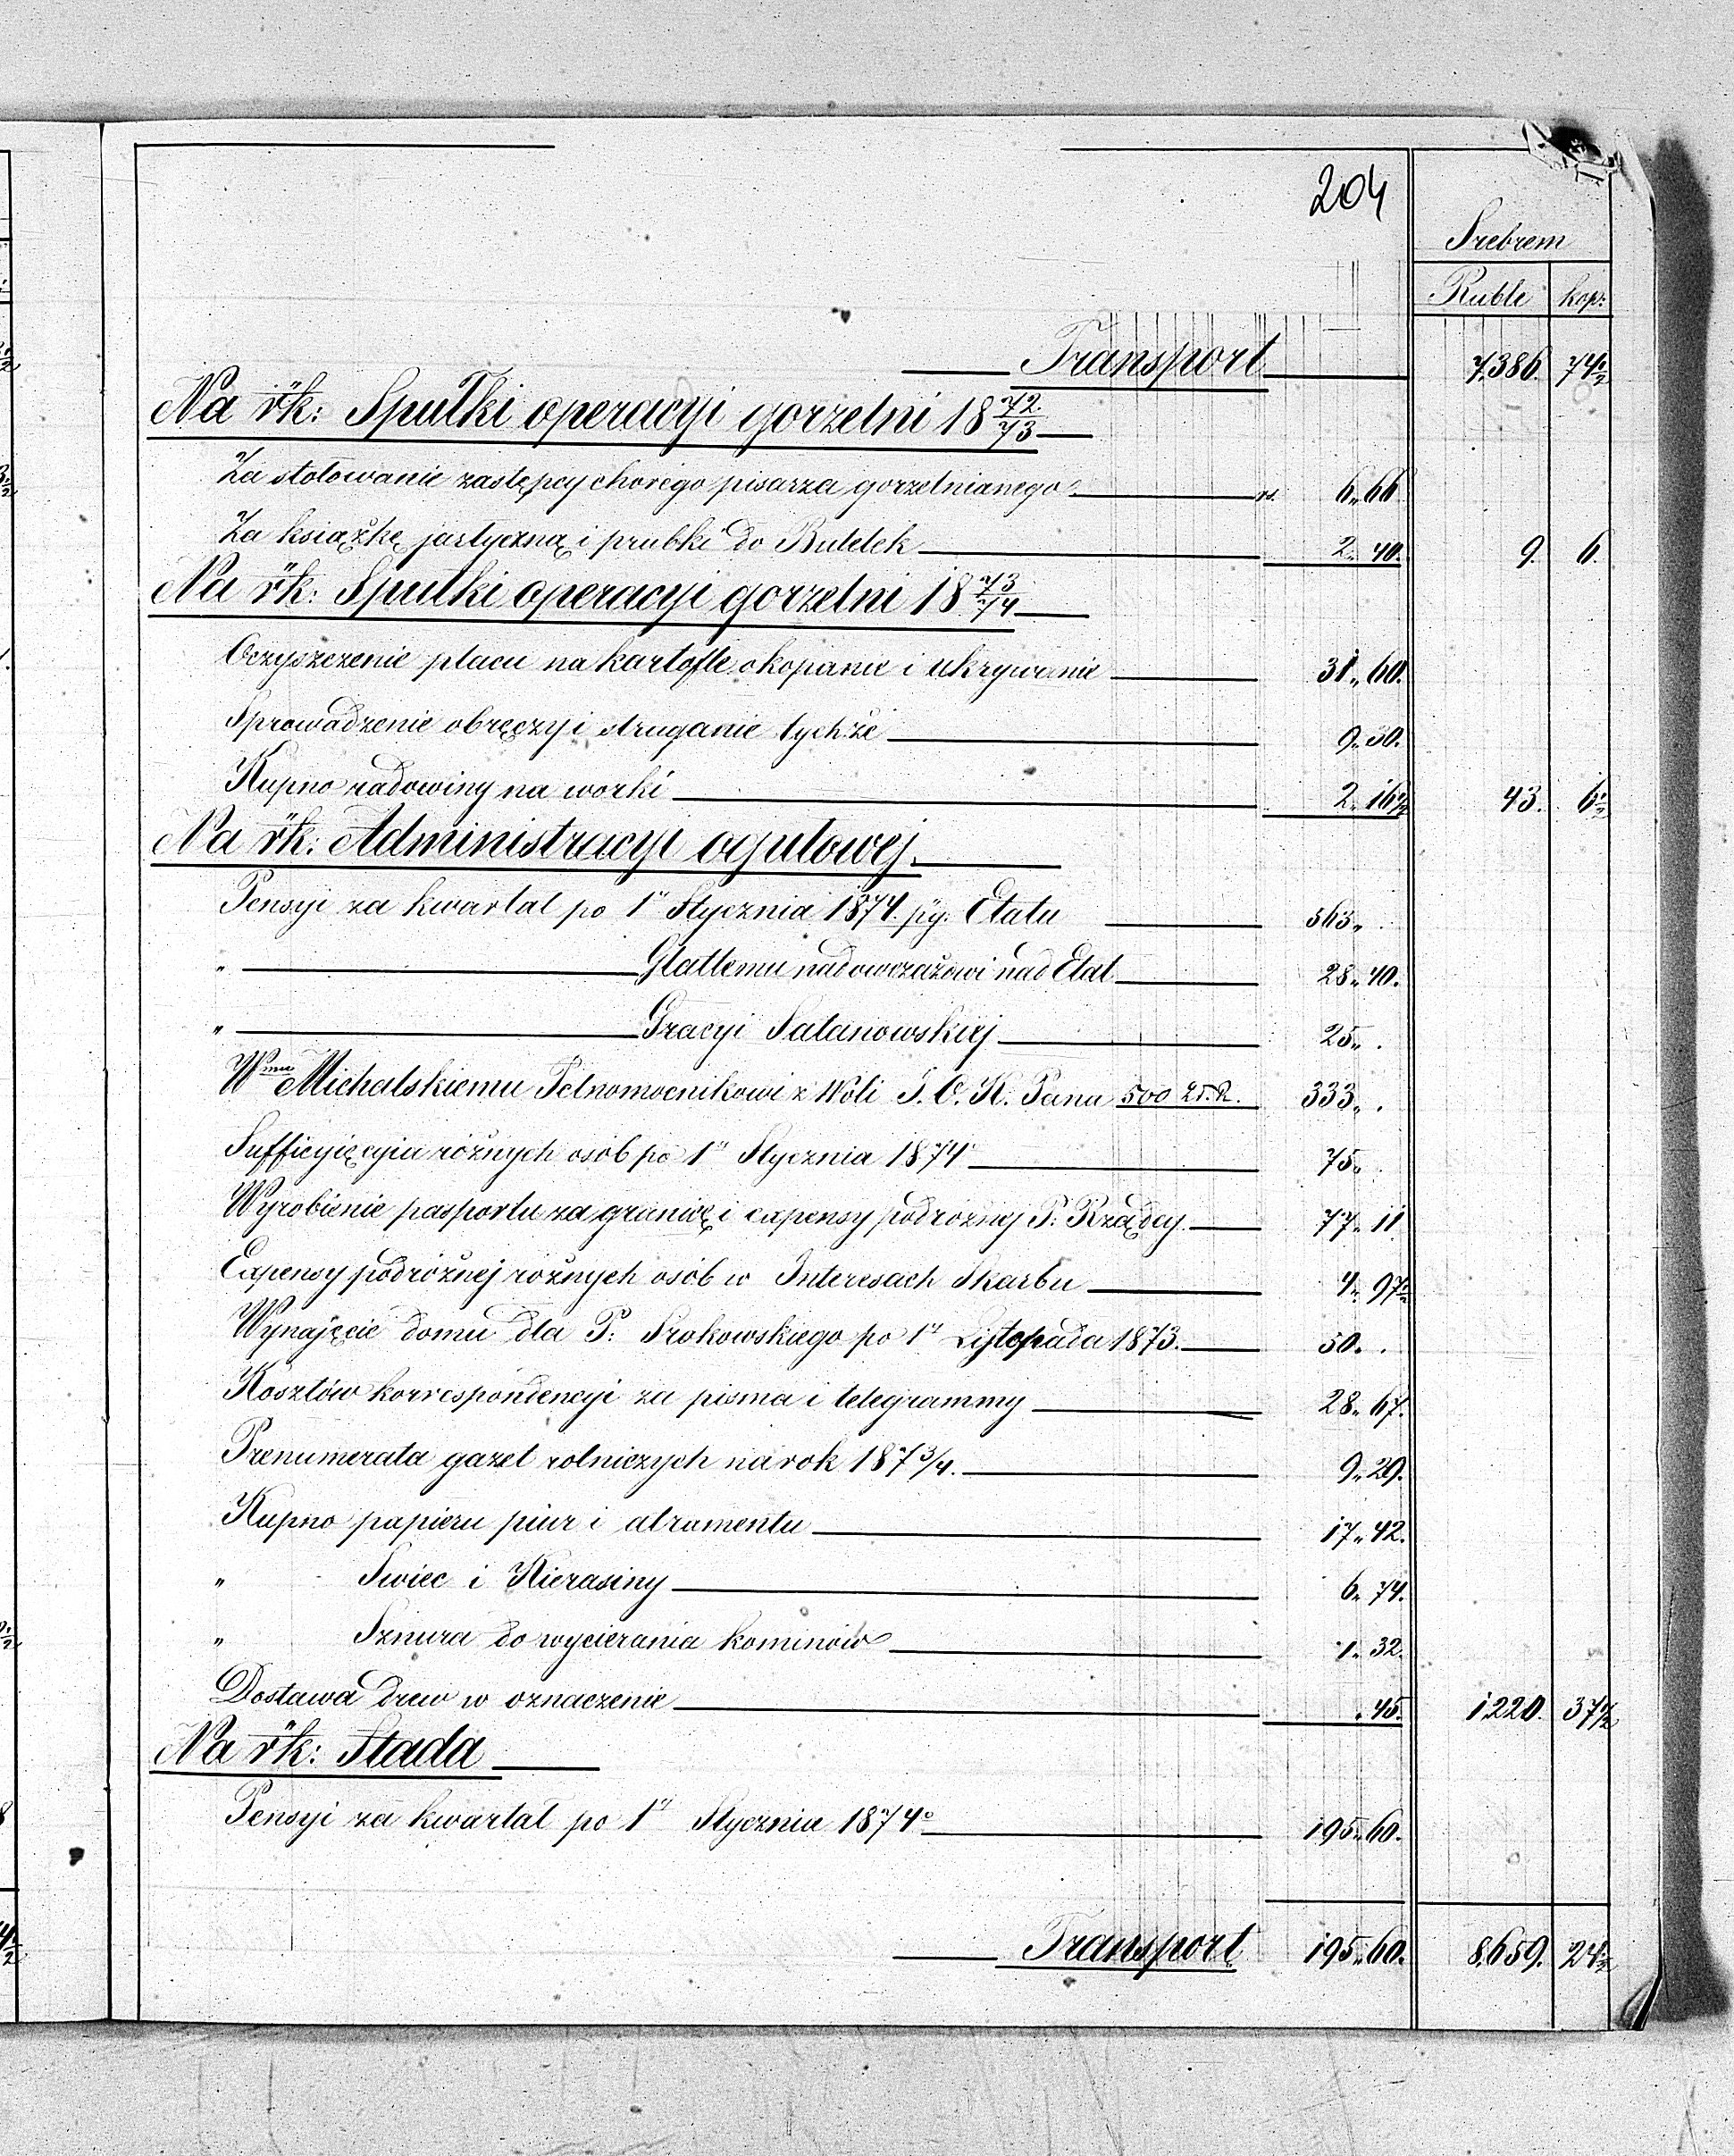 204
Srebrem
Ruble kop:
Transport 7,386. 74½
Na r̃k: Spułki operacyi gorzelni 18 72/73
Za stołowanie zastępcy chorego pisarza gorzelnianego rs. 6„66
Za książkę jartyczną i prubki do Butelek 2„40. 9. 6.
Na r̃k: Spułki operacyi gorzelni 18 73/74
Oczyszczenie placu na kartofle okopanie i ukrywanie 31„60.
Sprowadzenie obręczy i struganie tychże 9„30.
Kupno radowiny na worki 2„16½ 43. 6½
Na r̃k: Administracyi ogułowej.
Pensyi za kwartał po 1ⁿ Stycznia 1874. py: Etatu 563„ .
„ Glattemu nadowczażowi nad Etat 28„40.
„ Gracyi Satanowskiej 25„ .
Wmu Michalskiemu Pełnomocnikowi z Woli J. O. K. Pana 500 25.R. 333„ .
Sufficyięcyia różnych osób po 1ⁿ Stycznia 1874 75„ .
Wyrobienie pasportu za granicę i expensy podrożnej P: Rządcy 77„11.
Expensy podróżnej różnych osób w Interesach Skarbu 4„97½
Wynajęcie domu dla P: Srokowskiego po 1ⁿ Listopada 1873. 50„ .
Kosztów korrespondencyi za pisma i telegrammy 28„67.
Prenumerata gazet rolniczych na rok 1873/4. 9„29.
Kupno papieru piur i atramentu 17„42.
„ Swiec i Kierasiny 6„74.
„ Sznura do wycierania kominów 1„32.
Dostawa drew w oznaczenie „45. 1220. 37½
Na r̃k: Stada
Pensyi za kwartał po 1ⁿ Stycznia 1874º 195„60.
Transport 195„60. 8,659. 24½